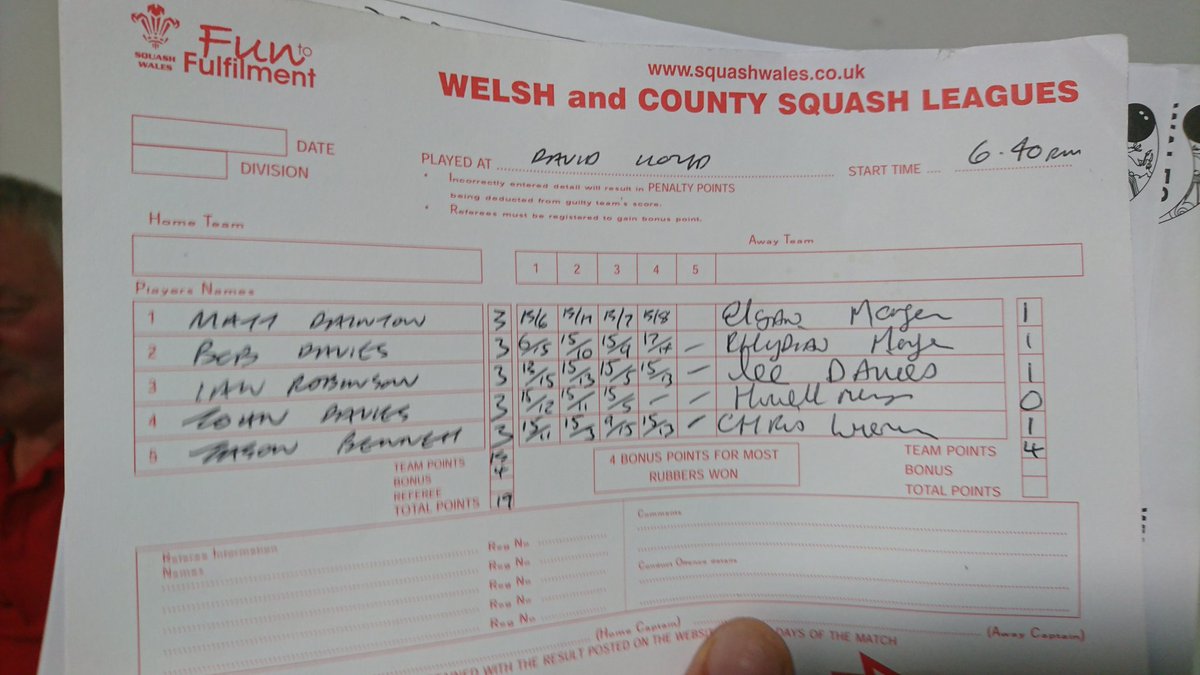 SQUASH WALES
Fun to Fulfilment
www.squashwales.co.uk
WELSH and COUNTY SQUASH LEAGUES
DATE
DIVISION
PLAYED AT DAVID LLOYD START TIME 6.40pm
• Incorrectly entered detail will result in PENALTY POINTS
being deducted from guilty team's score.
• Referees must be registered to gain bonus point.
Home Team
Away Team
1 2 3 4 5
Players Names
1 MATT DAINTON 3 15/6 15/7 15/8 Morgan 1
2 BEB DAVIES 3 6/15 15/10 15/9 – RHYDIAN Morgan 1
3 IAN ROBINSON 3 13/15 15/13 15/5 15/13 – Lee DAVIES 1
4 JOHN DAVIES 3 15/12 15/11 15/5 – – Howell 0
5 JASON BENNETT 3 15/11 15/3 9/15 15/13 – CHRIS 1
TEAM POINTS 15
BONUS 4
REFEREE
TOTAL POINTS 19
4 BONUS POINTS FOR MOST
RUBBERS WON
TEAM POINTS 4
BONUS
TOTAL POINTS
Referee Information
Names
Reg No
Reg No
Reg No
Reg No
Reg No
Comments
Conduct Offence details
(Home Captain)
(Away Captain)
WITH THE RESULT POSTED ON THE DAYS OF THE MATCH